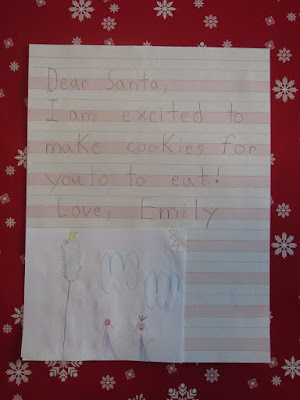 Dear Santa,
I am excited to
make cookies for
you to to eat!
Love, Emily